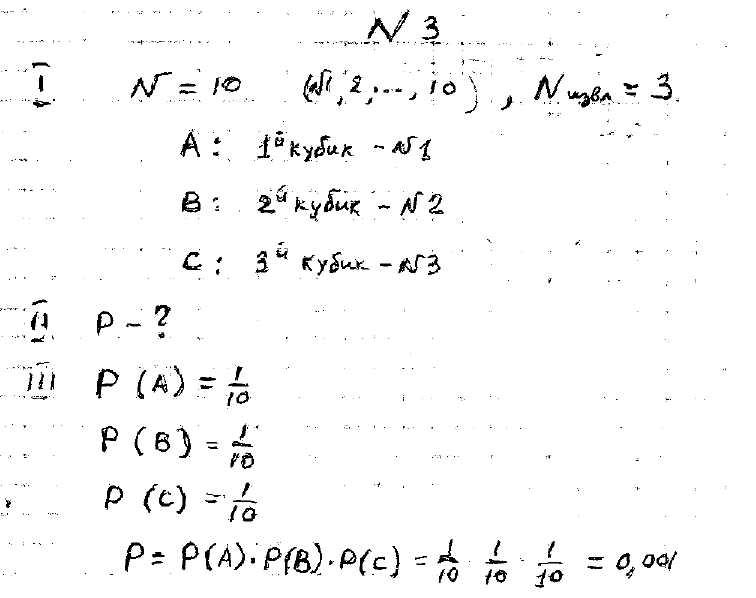 N 3
I N = 10 (N1, 2, ..., 10), N извл = 3
A: 1й кубик - N1
B: 2й кубик - N2
C: 3й кубик - N3
II P - ?
III P (A) = 1/10
P (B) = 1/10
P (C) = 1/10
P = P(A) · P(B) · P(C) = 1/10 · 1/10 · 1/10 = 0,001